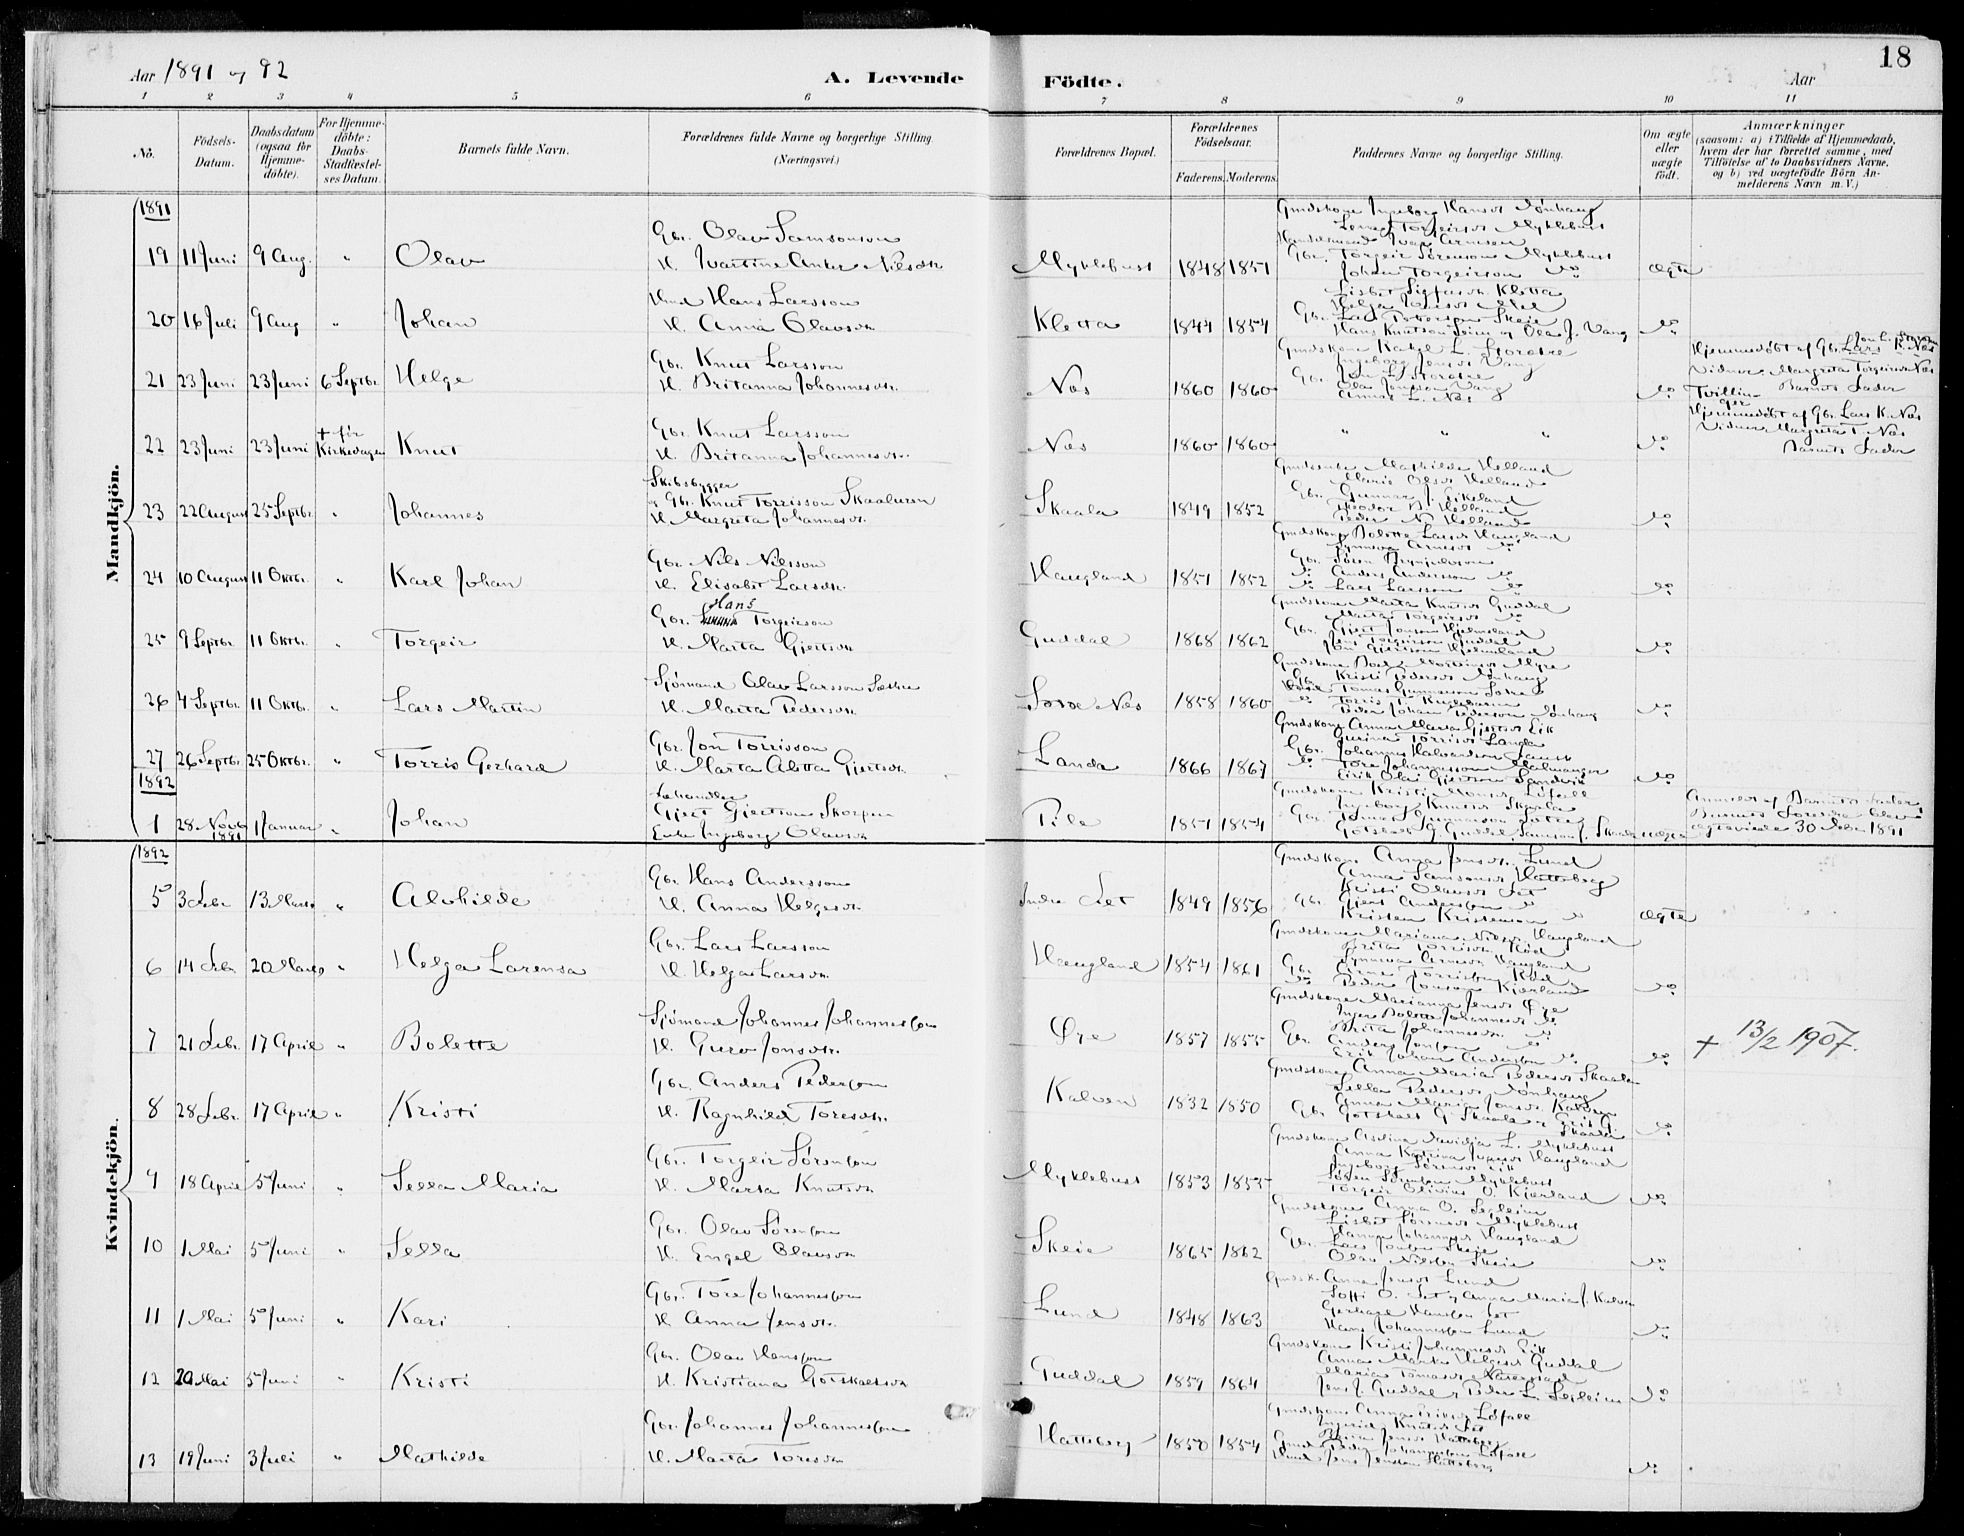 18
Aar 1891 og 92
A. Levende Födte.
Aar
1 2 3 4 5 6 7 8 9 10 11
No.
Födsels-Datum.
Daabsdatum (ogsaa for Hjemme-döbte).
For Hjemme-döbte: Daabs-Stadfæstel-ses Datum.
Barnets fulde Navn.
Forældrenes fulde Navne og borgerlige Stilling. (Næringsvei.)
Forældrenes Bopæl.
Forældrenes Födselsaar.
Faderens. Moderens.
Faddernes Navne og borgerlige Stilling.
Om ægte eller uægte födt.
Anmærkninger
(saasom: a) i Tilfælde af Hjemmedaab, hvem der har forrettet samme, med Tilföielse af to Daabsvidners Navne, og b) ved uægtefödte Börn Anmelderens Navn m. V.)
Mandkjön.
1891
19 11 Juni 9 Aug. " Olav
Gbr. Olav Samsonson
H. Ivartine Anker Nilsdtr.
Myklebust 1848 1851
Gmdskone Ingeborg Hansdt Tonhaug
Torgeirsdt Myklebust
Handelsmand Ivar Arnesen
Gbr. Torgeir Sørenson Myklebust
Johan Torgeirson do
ægte
20 16 Juli 9 Aug " Johan
Hmd Hans Larsson
H. Anna Olavsdtr.
Kletta 1844 1854
Lisbet Sigfusdt. Kletta
Hans Knutson Seim og Olav J. Vang
do
21 23 Juni 23 Juni 6 Septbr. Helge
Gbr. Knut Larsson
H. Britanna Johannesdtr.
Næs 1860 1860
Gmdskone Rakel L. Storøre
Ingeborg Jensdt Vang
Gbr. Jon L. Storøre
Olav Jonsson Vang
Anna L. Næs
do
Hjemmedøbt af Gbr. Lars K. Næs
Vidner Margreta Torgeirsdt Næs
Barnets Fader
Tvillinger
22 23 Juni 23 Juni + før Kirkedagen Knut
Gbr. Knut Larsson
H. Britanna Johannesdtr.
Næs 1860 1860
" " "
do
Hjemmedøbt af Gbr. Lars K. Næs
Vidner Margreta T. Næs
Barnets Fader
23 22 August 25 Septbr. " Johannes
Skibsbygger
og Gbr. Knut Torrisson Skaaluren
H. Margreta Johannesdt.
Skaala 1849 1852
Mathilde Helland
Marie Olsdt Helland
Gbr. Gunnar J. Eikeland
Teodor B. Helland
Peder N. Helland
do
24 10 August 11 Oktbr. " Karl Johan
Gbr. Nils Nilsson
H. Elisabet Larsdtr.
Haugland 1851 1852
Gmdskone Bolette Larsdt Haugland
Synneva Arnesdt do
Gbr. Søren Brynjulvson
do Anders Andersson do
do Lars Larsson do
do
25 9 Septbr. 11 Oktbr. " Torgeir
Gbr. Hans Torgeirson
H. Marta Gjertsdtr
Guddal 1868 1862
Gmdskone Marta Knutsdt Guddal
Marta Torgeirsdt do
Gbr. Gjert Jonson Hjelmeland
Jens Torgeirson Guddal
Jon Gjertson Hjelmeland
do
26 4 Septbr. 11 Oktbr. " Lars Martin
Sjømand Olav Larsson Sætre
H. Marta Pedersdtr.
Store Næs 1858 1860
Kristi Pedersdt Tonhaug
Tomas Gunnarson Sætre
Peder Johan Pederson Tonhaug
do
27 26 Septbr. 25 Oktbr. " Torris Gerhard
Gbr. Jon Torrisson
H. Marta Aletta Gjertsdtr.
Landa 1866 1867
Gmdskone Anna Marta Gjertsdt Eik
Gurina Torrisdt Landa
Gbr. Johannes Halvardson
do Tore Johannesson Malmanger
Eirik Olai Gjertson Sandvik
do
1892
1 28 Novbr 1891 1 Januar " Johan
Fehandler
Gjert Gjertson Skorpen
Enke Ingeborg Olavsdtr
Pile 1851 1854
Gmdskone Kristi Monsdt Løfall
Ingeborg Knutsdt Skjerla
Gbr. Tomas Gunnarson Sætre
Gotskalk G. Guddal, Samson J. Skaala
uægte
Anmeldt af Barnets Fader,
Barnets Foreldre blev
ægteviede 30 Decbr 1891
Kvindekjön.
1892
5 3 Febr. 13 Marts " Alvhilde
Gbr. Hans Andersson
H. Anna Helgesdtr.
Indre Set 1849 1856
Gmdskone Anna Jensdt. Lund
Anna Samsonsdt Hatteberg
Kristi Olavsdt Set
Gbr. Gjert Anderson do
Kristen Kristenson do
ægte
6 14 Febr. 20 Marts " Helga Larensa
Gbr. Lars Larsson
H. Helga Larsdtr.
Haugland 1854 1861
Gmdskone Mariana Nilsdt. Haugland
Brita Torrisdt. Rød
Synneva Arnesdt Haugland
Gbr. Arne Torrisson Rød
do Peder Jonson Kjerland
do
7 21 Febr. 17 April " Bolette
Sjømand Johannes Johannesson
H. Guro Jonsdtr.
Øre 1857 1855
Gmdskone Marianna Jensdt Øre
Inger Bolette Johannesdt do
Brita Johannesdt. do
Gbr. Anders Jonson do
Erik Johan Anderson do
do
+ 13/2 1907.
8 28 Febr. 17 April " Kristi
Gbr. Anders Pederson
H. Ragnhild Toresdtr.
Kalven 1832 1850
Gmdskone Anna Maria Pedersdt Skaala
Sella Pedersdt Tonhaug
Anna Maria Jonsdt. Kalven
Gbr. Gotskalk G. Skaala og Erik G. Skaala
do
9 18 April 5 Juni " Sella Maria
Gbr. Torgeir Sørenson
H. Marta Knutsdtr
Myklebust 1853 1855
Gmdskone Aselina Davidja L. Myklebust
Anna Katrina Haugland
Ingeborg Sørensdt Eik
Søren Sørenson Myklebust
Torgeir Olivius O. Kjerland
do
10 1 Mai 5 Juni " Sella
Gbr. Olav Sørenson
H. Engel Olavsdtr
Skeie 1865 1862
Gmdskone Anna O. Seglem
Lisbet Sørensdt Myklebust
Hanna Johannesdt Haugland
Gbr. Lars Jonson Skeie
Olav Nilson Skeie
do
11 1 Mai 5 Juni " Kari
Gbr. Tore Johannesson
H. Anna Jensdtr.
Lund 1848 1863
Gmdsk. Anna Jensdt Lund
Soffi O. Set og Anna Maria J. Kalven
Gerhard Hanson Set
Hans Johannesson Lund
do
12 20 Mai 5 Juni " Kristi
Gbr. Olav Hansson
H. Kristiana Gotskalksdtr
Guddal 1859 1864
Gmdskone Kristi Johannesdt Eik
Anna Marta Helgesdt Guddal
Maria Tomasdt Naterstad
Jens J. Guddal og Peder L. Seglem
do
13 19 Juni 3 Juli " Mathilde
Gbr. Johannes Johannesson
H. Marta Toresdtr
Hatteberg 1850 1854
Gmdskone Anna Eriksdt Løfall
Ingerid Knutsdt Set
Brita Jensdt Hatteberg
Gmd. Peder Johannesson Løfall
Hmd. Jens Jenson Hatteberg
do